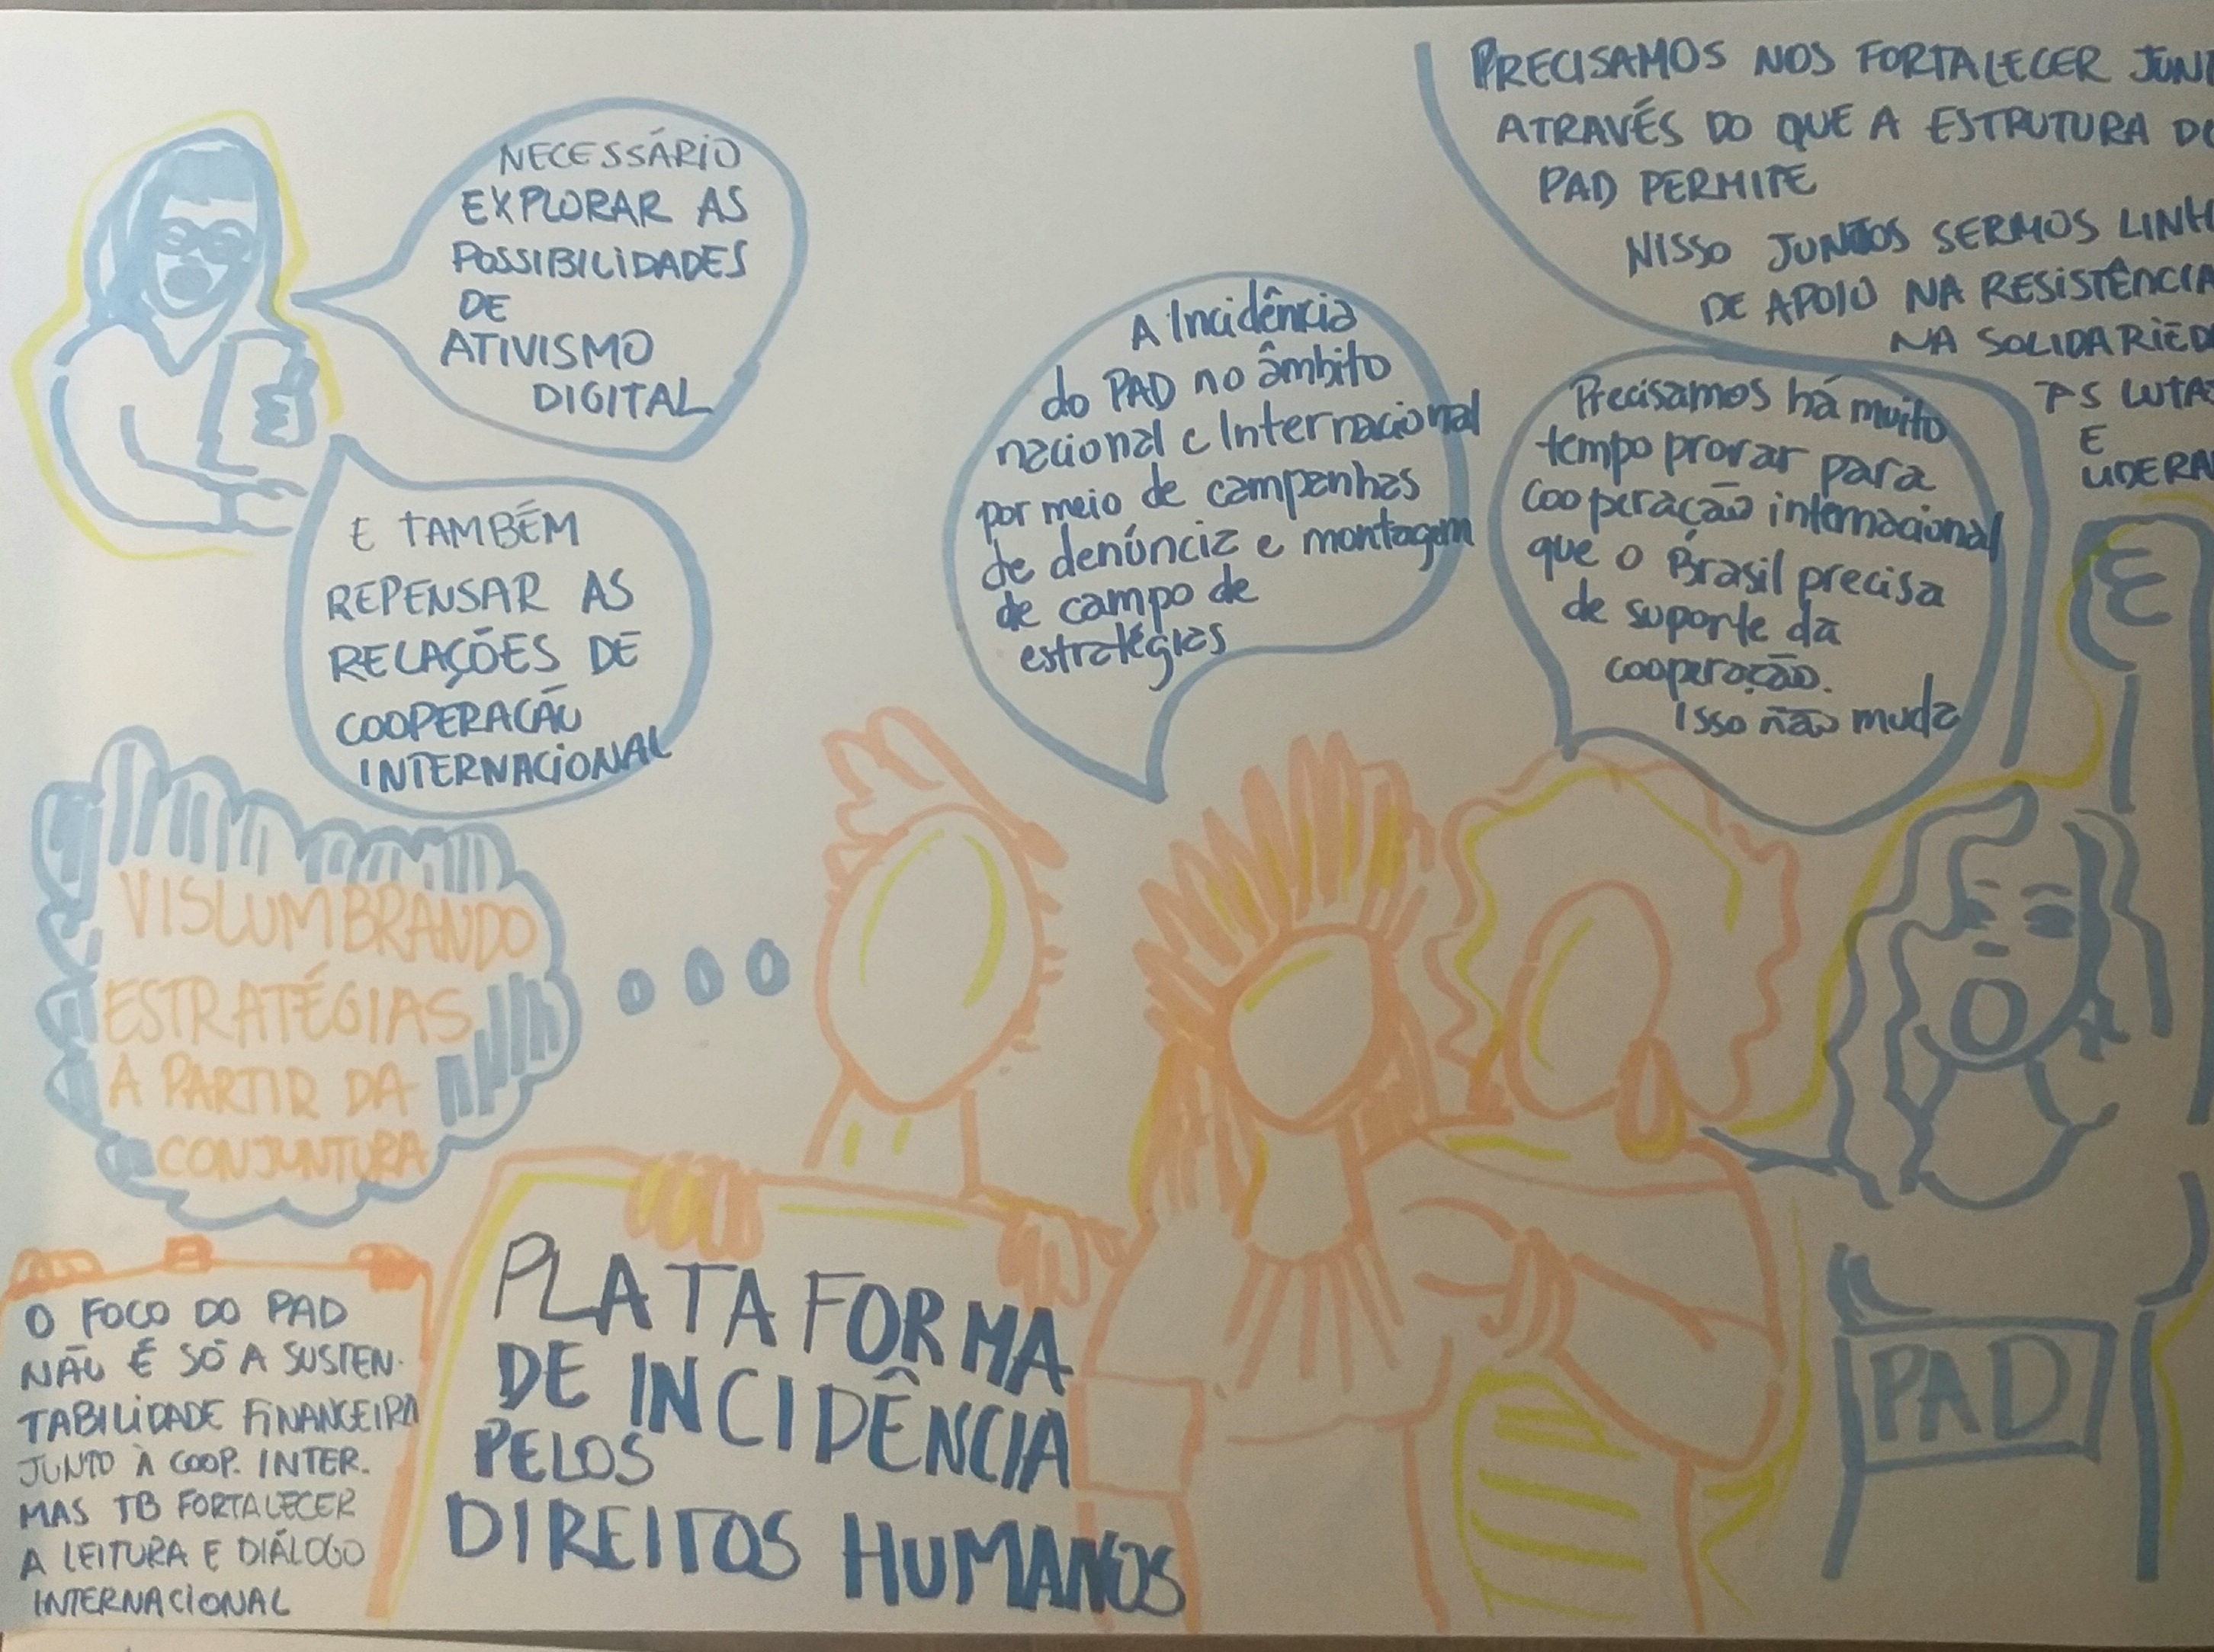 NECESSÁRIO
EXPLORAR AS
POSSIBILIDADES
DE
ATIVISMO
DIGITAL
E TAMBÉM
REPENSAR AS
RELAÇÕES DE
COOPERAÇÃO
INTERNACIONAL
A Incidência
do PAD no âmbito
nacional e Internacional
por meio de campanhas
de denúncia e montagem
de campo de
estratégias
PRECISAMOS NOS FORTALECER
ATRAVÉS DO QUE A ESTRUTURA
PAD PERMITE
NISSO JUNTOS SERMOS
DE APOIO NA RESISTÊNCIA
NA
AS
E
Precisamos há muito
tempo provar para
cooperação internacional
que o Brasil precisa
de suporte da
cooperação.
Isso não muda
VISLUMBRANDO
ESTRATÉGIAS
A PARTIR DA
CONJUNTURA
O FOCO DO PAD
NÃO É SÓ A SUSTEN-
TABILIDADE FINANCEIRA
JUNTO À COOP. INTER.
MAS TB FORTALECER
A LEITURA E DIÁLOGO
INTERNACIONAL
PLATAFORMA
DE INCIDÊNCIA
PELOS
DIREITOS HUMANOS
PAD